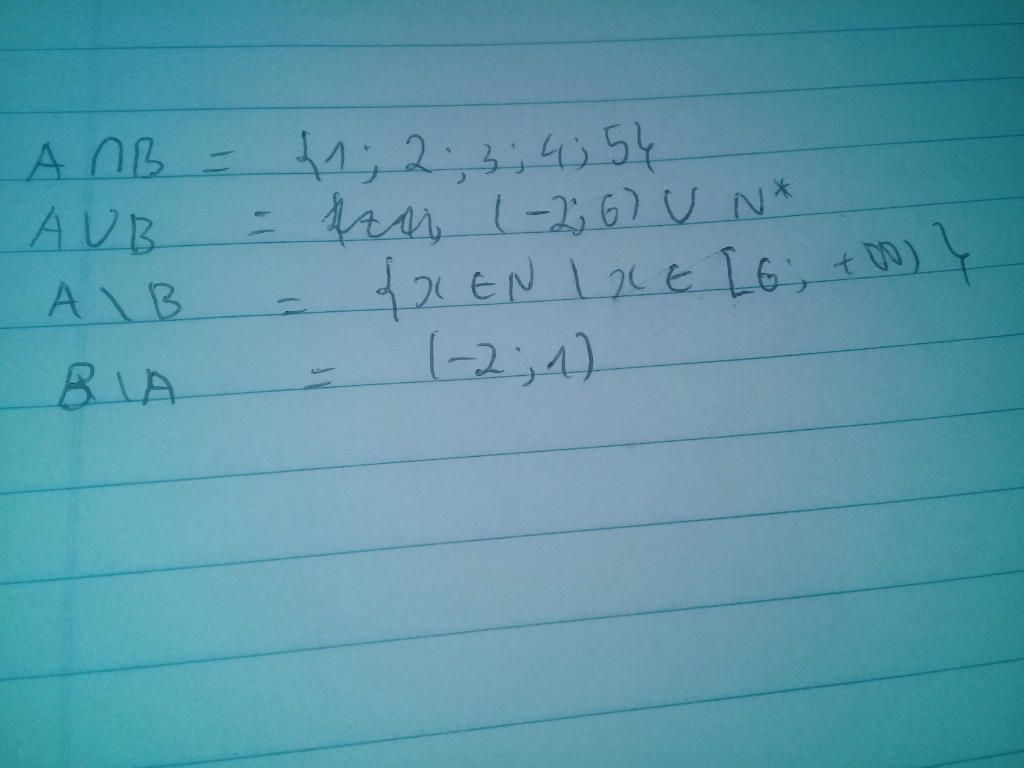 A ∩ B = {1; 2; 3; 4; 5}
A ∪ B = (-2; 6) ∪ N*
A \ B = {x ∈ N | x ∈ [6; +∞)}
B \ A = (-2; 1)